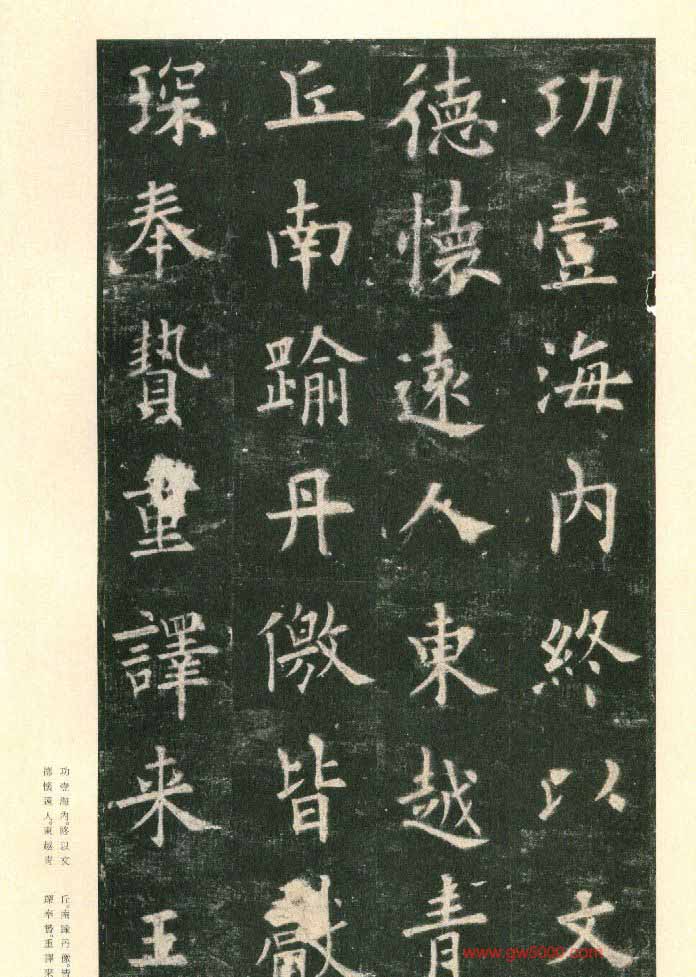 功壹海内終以文
德懷遠人東越青
丘南踰丹徼皆獻
琛奉贄重譯来王
功壹海内。終以文
德懷遠人。東越青
丘。南踰丹徼。皆
琛奉贄。重譯來
www.gw3000.com